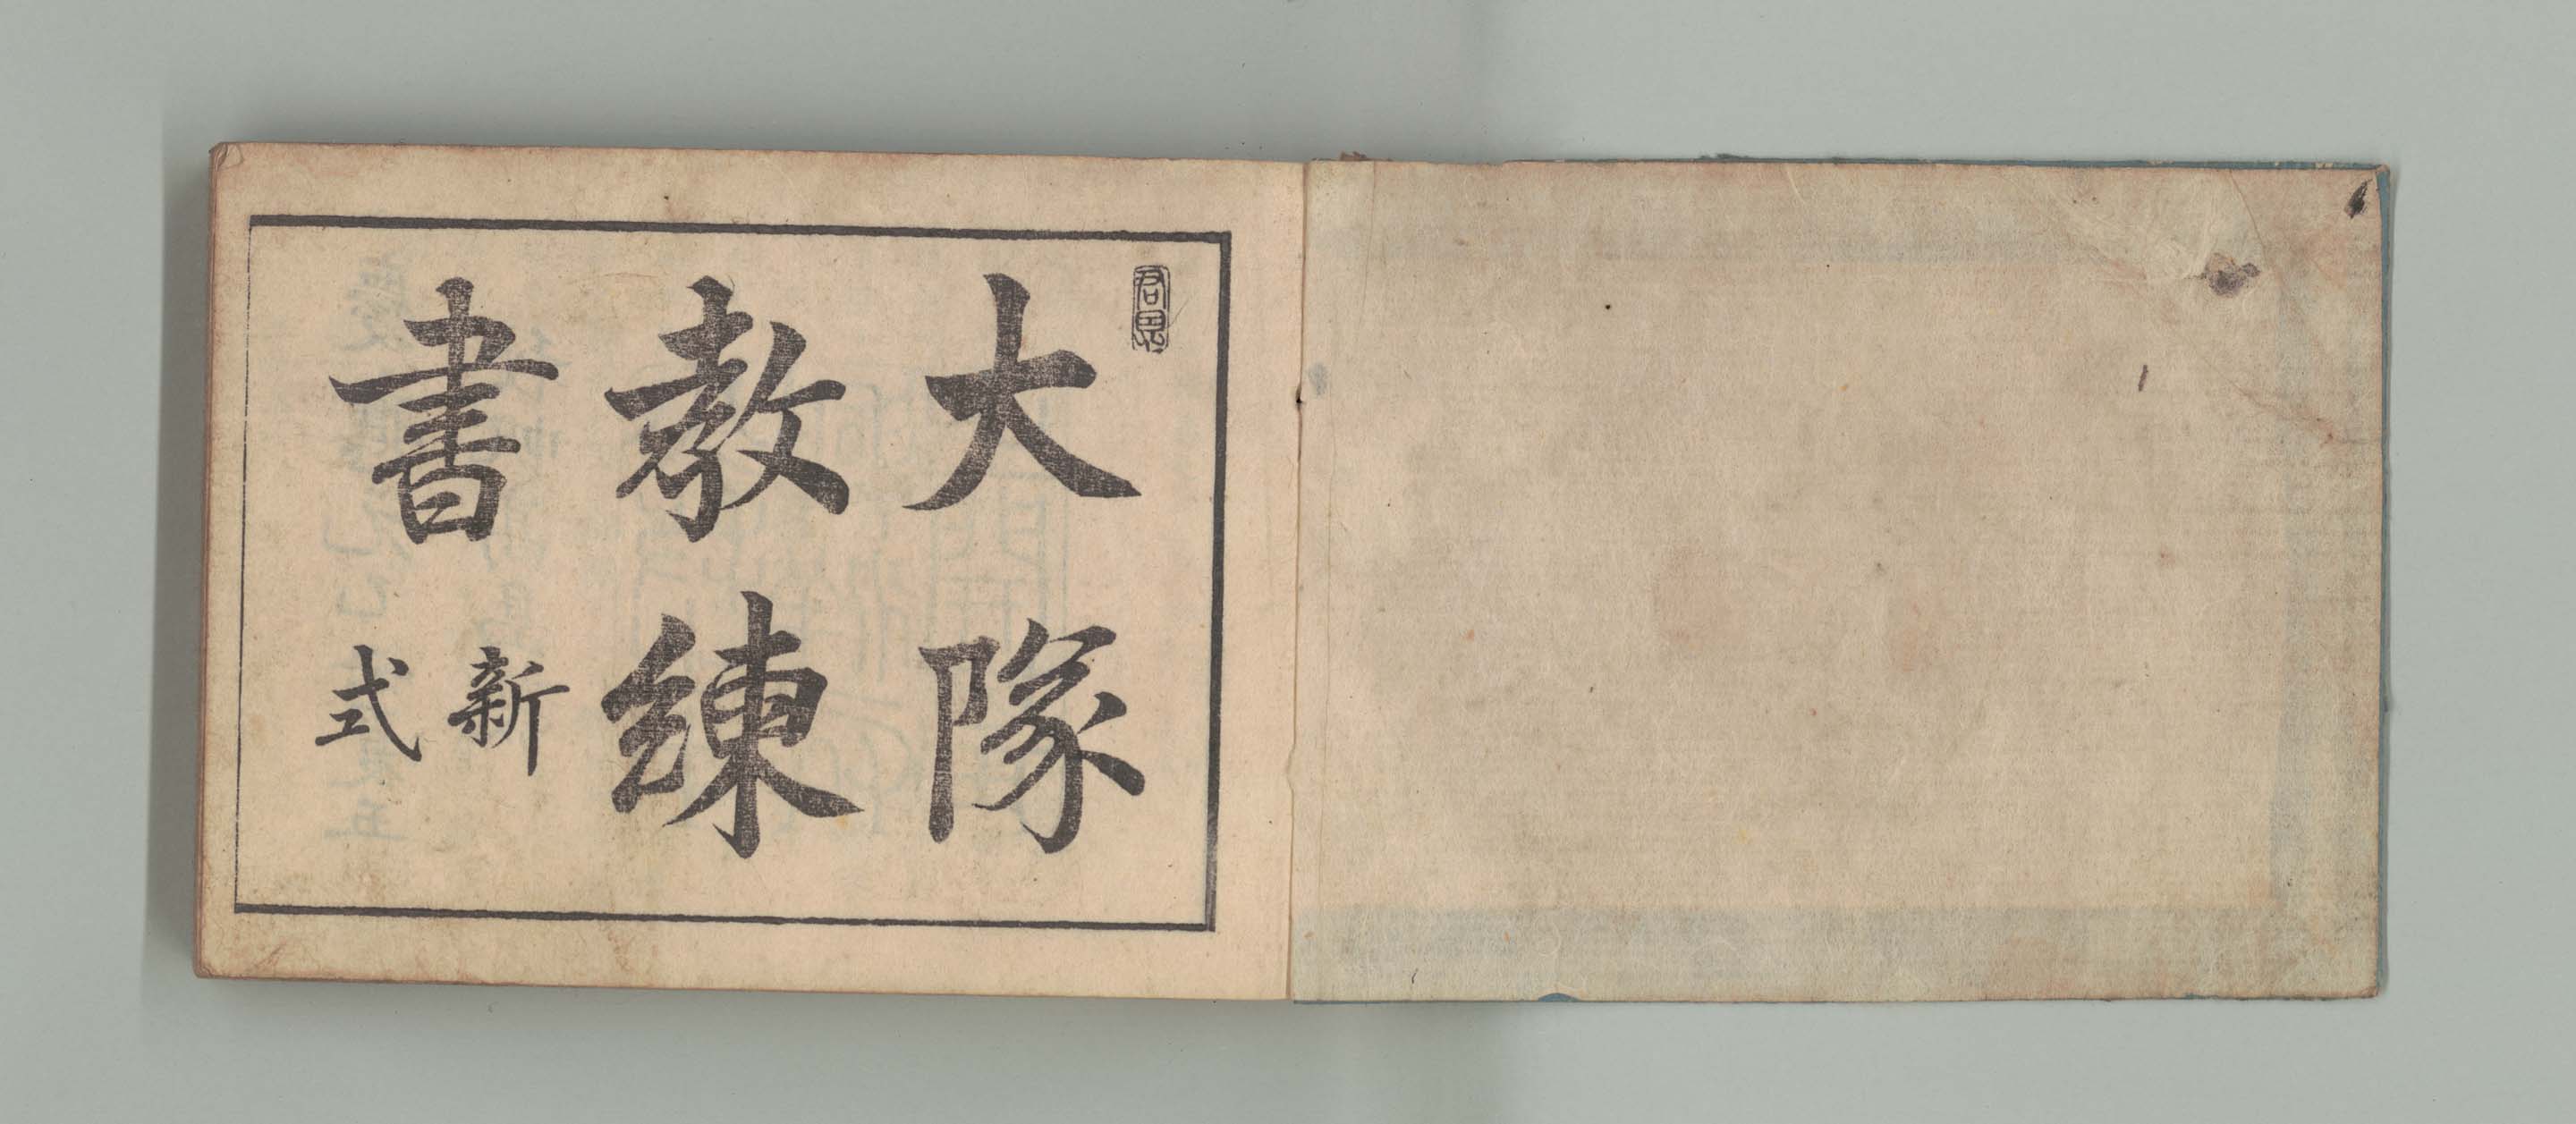 大隊
教練
書 新式